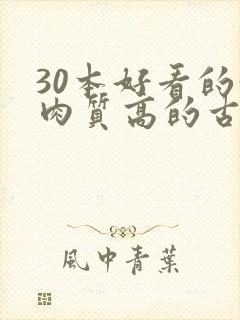 30本好看的
肉质高的古
風中青葉